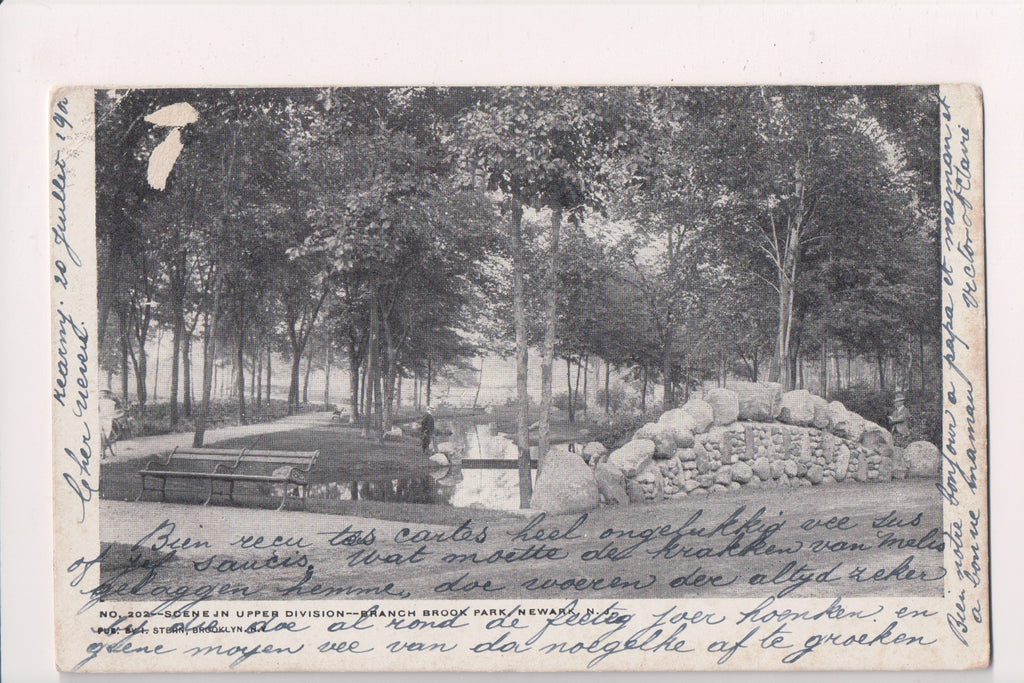 Kearny. 20 Juillet. 190
Cher neveu
Bien reçu tes cartes heel ongelukkig vee sus
of sef saucis. Wat moette de krakken van Melis
gelaggen hemme, doe woeren der altyd zeker
NO. 202--SCENE IN UPPER DIVISION--BRANCH BROOK PARK, NEWARK, N. J.
al rond de feeteg joer hoenken. en
PUB. BY I. STERN, BROOKLYN, N.Y.
giene moyen vee van da noegelke af te groeken
Bien notre bonjour a papa et maman et
a bonne maman Victor & Flavie